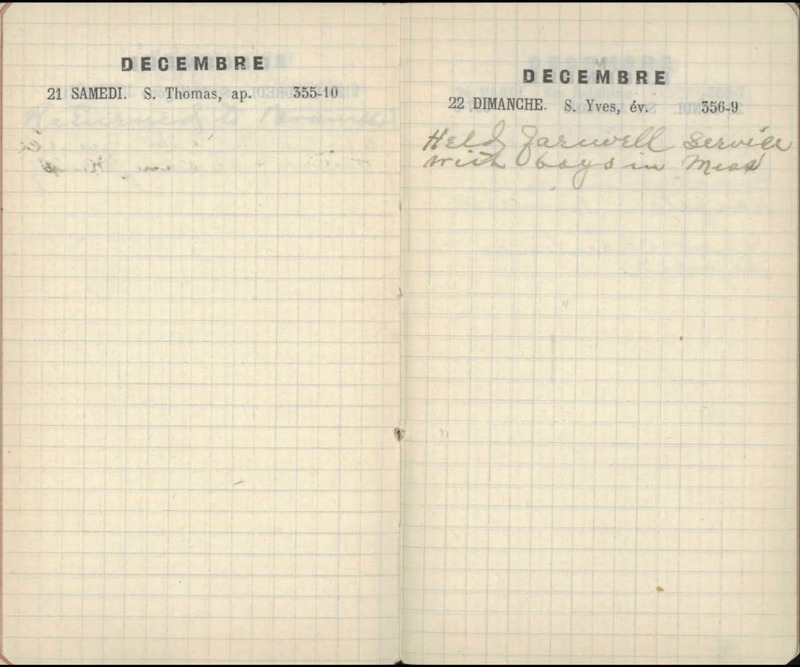 DECEMBRE
21 SAMEDI. S. Thomas, ap. 355-10
Returned to
DECEMBRE
22 DIMANCHE. S. Yves, év. 356-9
Held farewell service
with boys in Mess